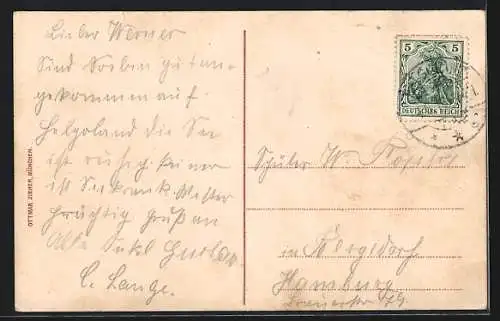 Lieber Werner
Sind Soeben gut an-
gekommen auf
Helgoland die See
ist ruhig. keiner
ist Seekrank Wetter
prächtig Gruß an
Alle Onkel
C. Lange.
OTTMAR ZIEHER, MÜNCHEN.
5 5
DEUTSCHES REICH
Schüler W.
in Bergedorf
Hamburg